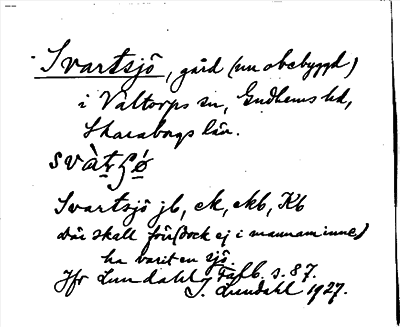 Svartsjö, gård (nu obebyggd)
i Valtorps sn, Gudhems hd,
Skaraborgs län.
svàt
Svartsjö jb, ek, ekb, Kb
där skall förr (dock ej i mannaminne)
ha varit en sjö.
Jfr Lundahl Falb. s. 87.
I. Lundahl 1927.